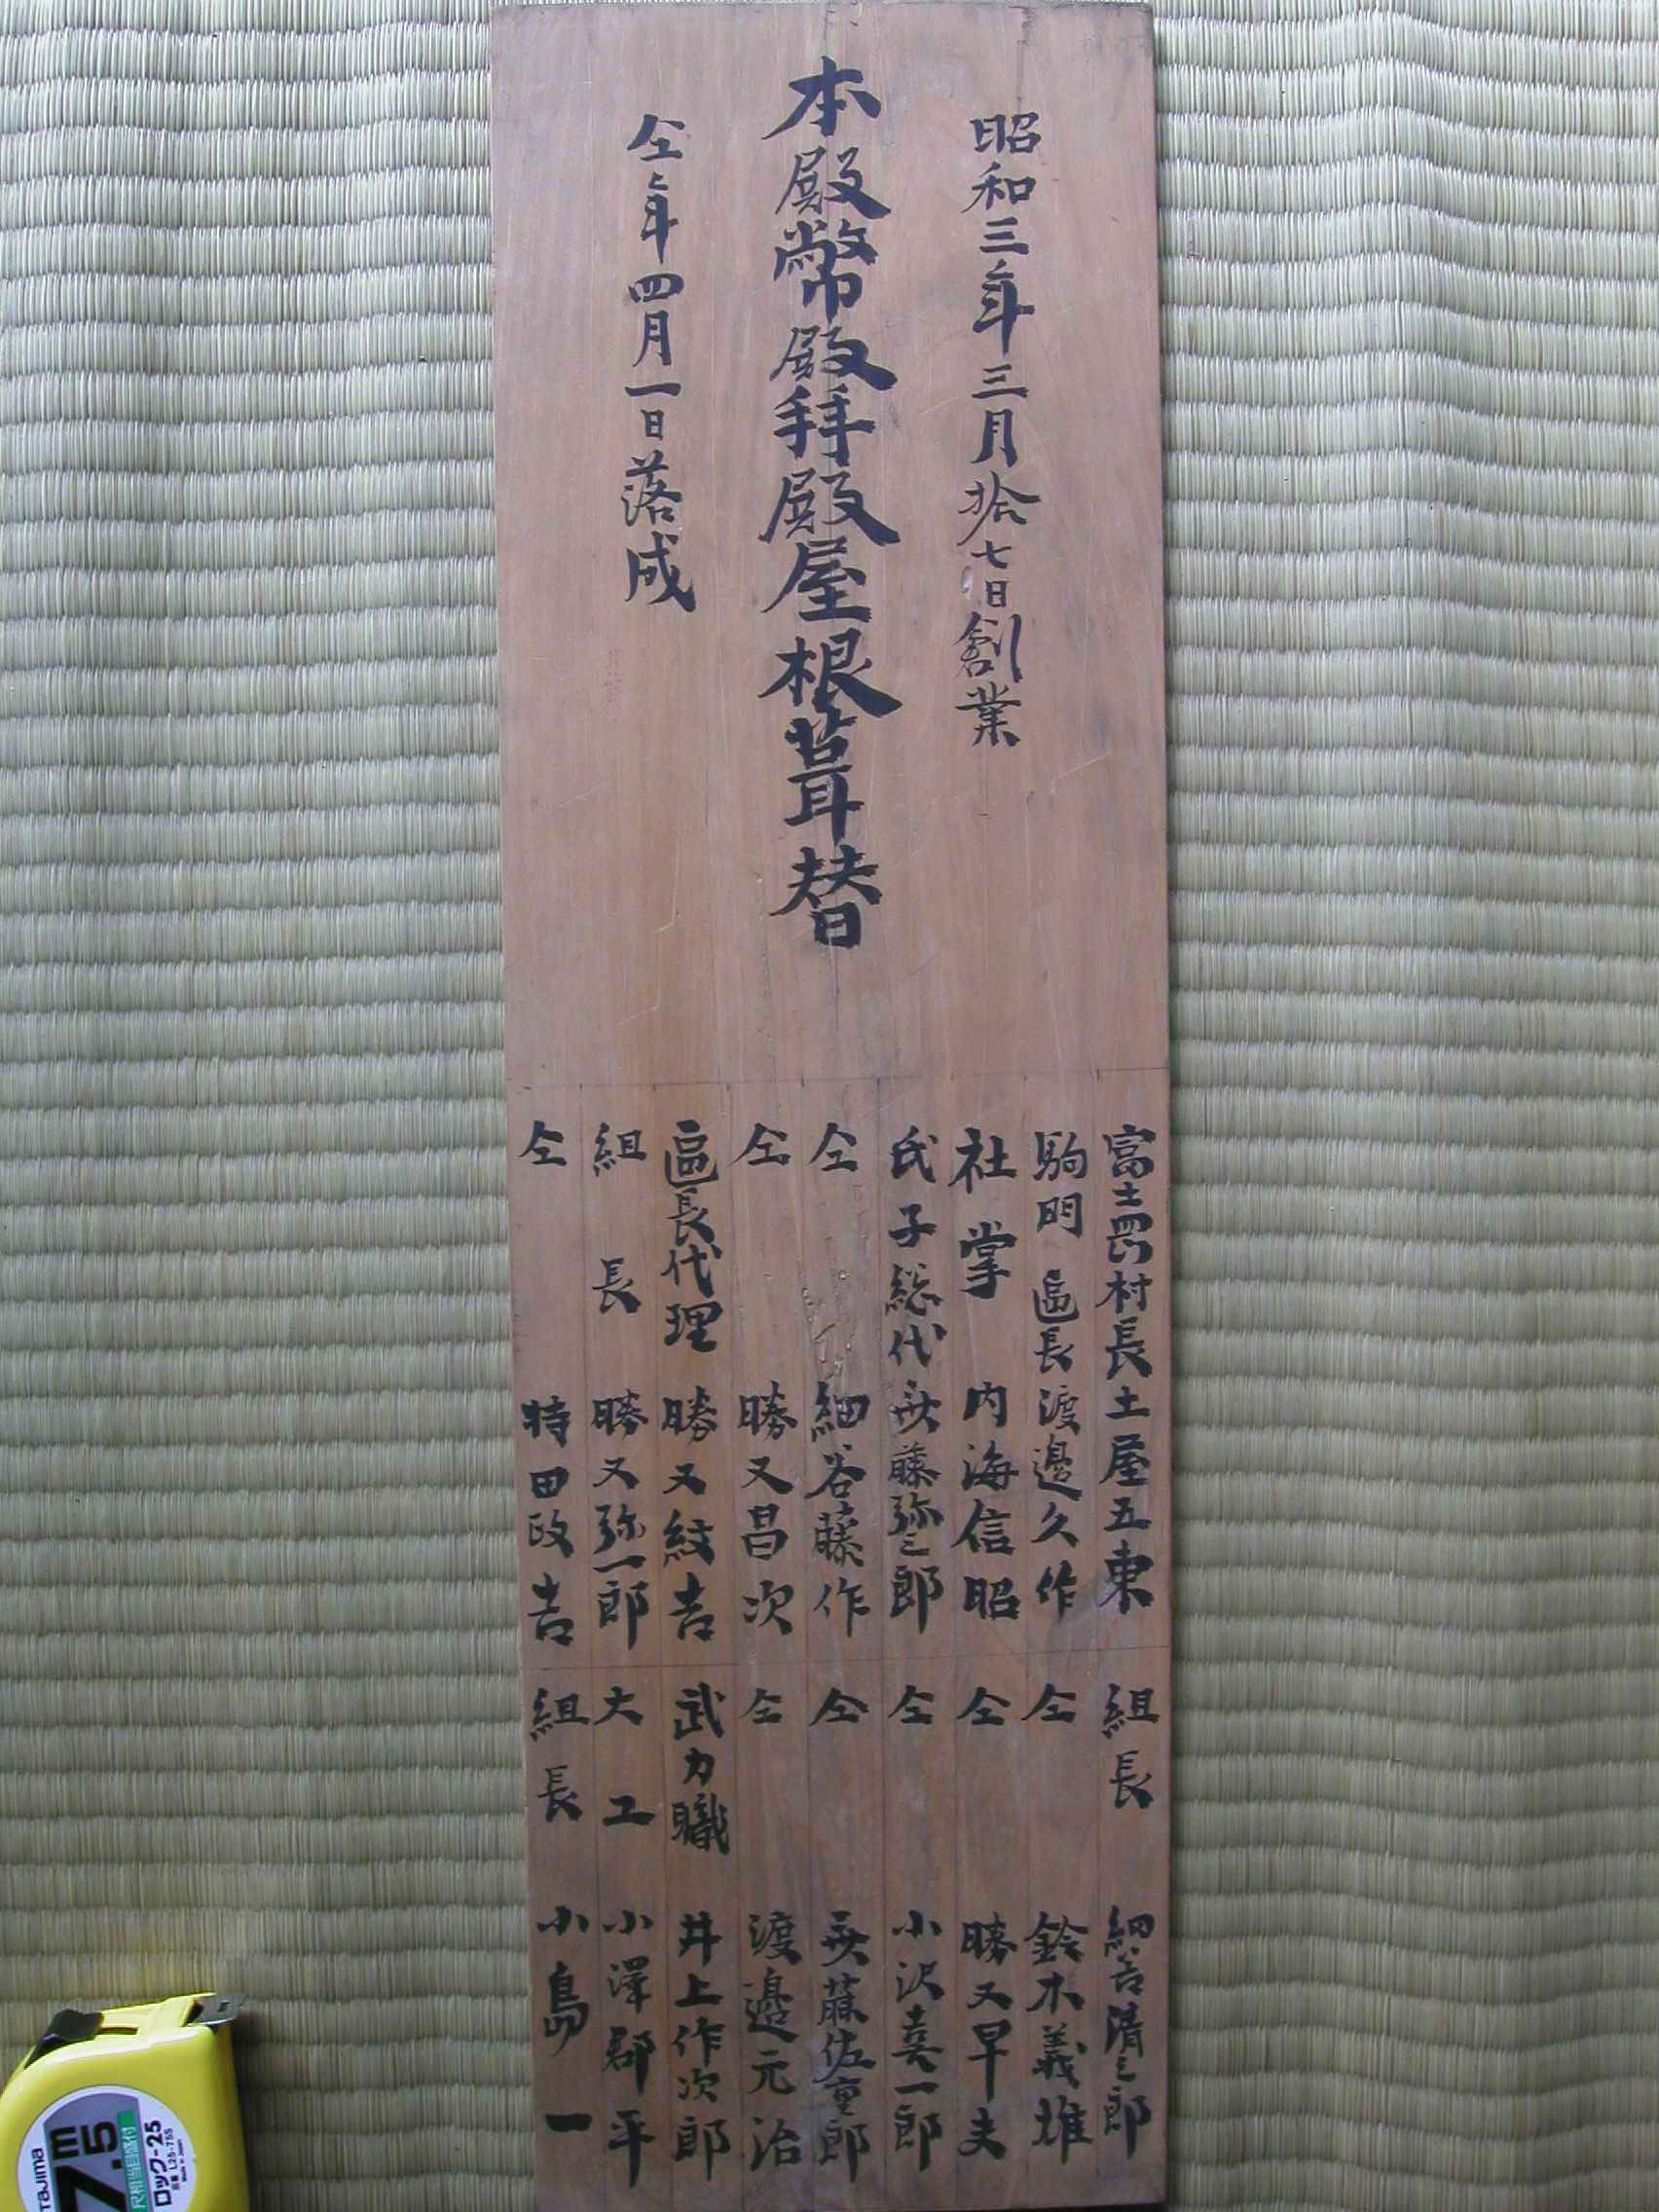 昭和三年三月拾七日創業
本殿幣殿拝殿屋根葺替
仝年四月一日落成
富士岡村長土屋五東
駒門 區長渡邊久作
社掌 内海信昭
氏子総代 藤弥三郎
仝 細谷藤作
仝 勝又昌次
區長代理 勝又紋吉
組長 勝又弥一郎
仝 特田政吉
組長 細谷清三郎
仝 鈴木義雄
仝 勝又早夫
仝 小沢喜一郎
仝 藤佐重郎
仝 渡邉元治
武力職 井上作次郎
大工 小澤郡平
組長 小島一
TAJIMA
7.5m
尺相当目盛付
ロック-25
品番 L25-75S